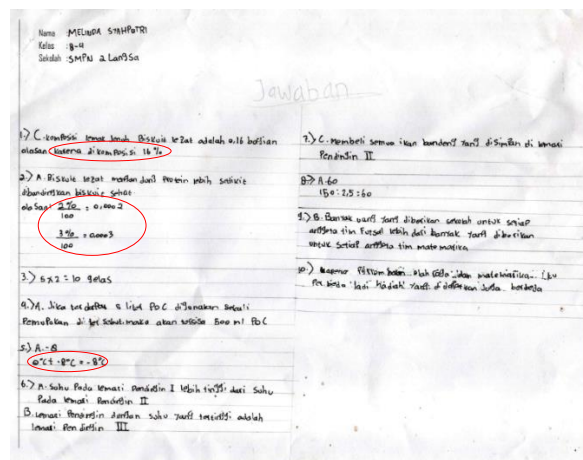 Nama : MELINDA SYAHPUTRI
Kelas : 8-4
Sekolah : SMPN 2 LangSa
Jawaban
1.) C. komposisi lemak jenuh Biskuit lezat adalah 0,16 bagian
alasan karena di komposisi 16 %
2.) A. Biskuit lezat protein lebih sedikit
dibandingkan biskuit sehat
alasan 2% = 0,0002
100
3% = 0,0003
100
3.) 5 x 2 = 10 gelas
4.) A. Jika terdapat 5 liter POC digunakan sekali
Pemupukan di maka akan tersisa 500 ml POC
5.) A. -8
0°C + -8°C = -8°C
6.) A. Suhu Pada lemari Pendingin I lebih tinggi dari Suhu
Pada lemari Pendingin II
B. Lemari Pendingin dengan suhu yang tertinggi adalah
lemari Pendingin III
7.) C. Membeli semua ikan bandeng Yang di Simpan di lemari
Pendingin II
8.) A. 60
150 : 2,5 = 60
9.) B. Banyak uang Yang diberikan sekolah untuk setiap
anggota tim Futsal lebih dari banyak Yang diberikan
untuk Setiap anggota tim matematika
10.) Karena olah raga dan matematika itu
berbeda Jadi Hadiah Yang di dapatkan Juga berbeda